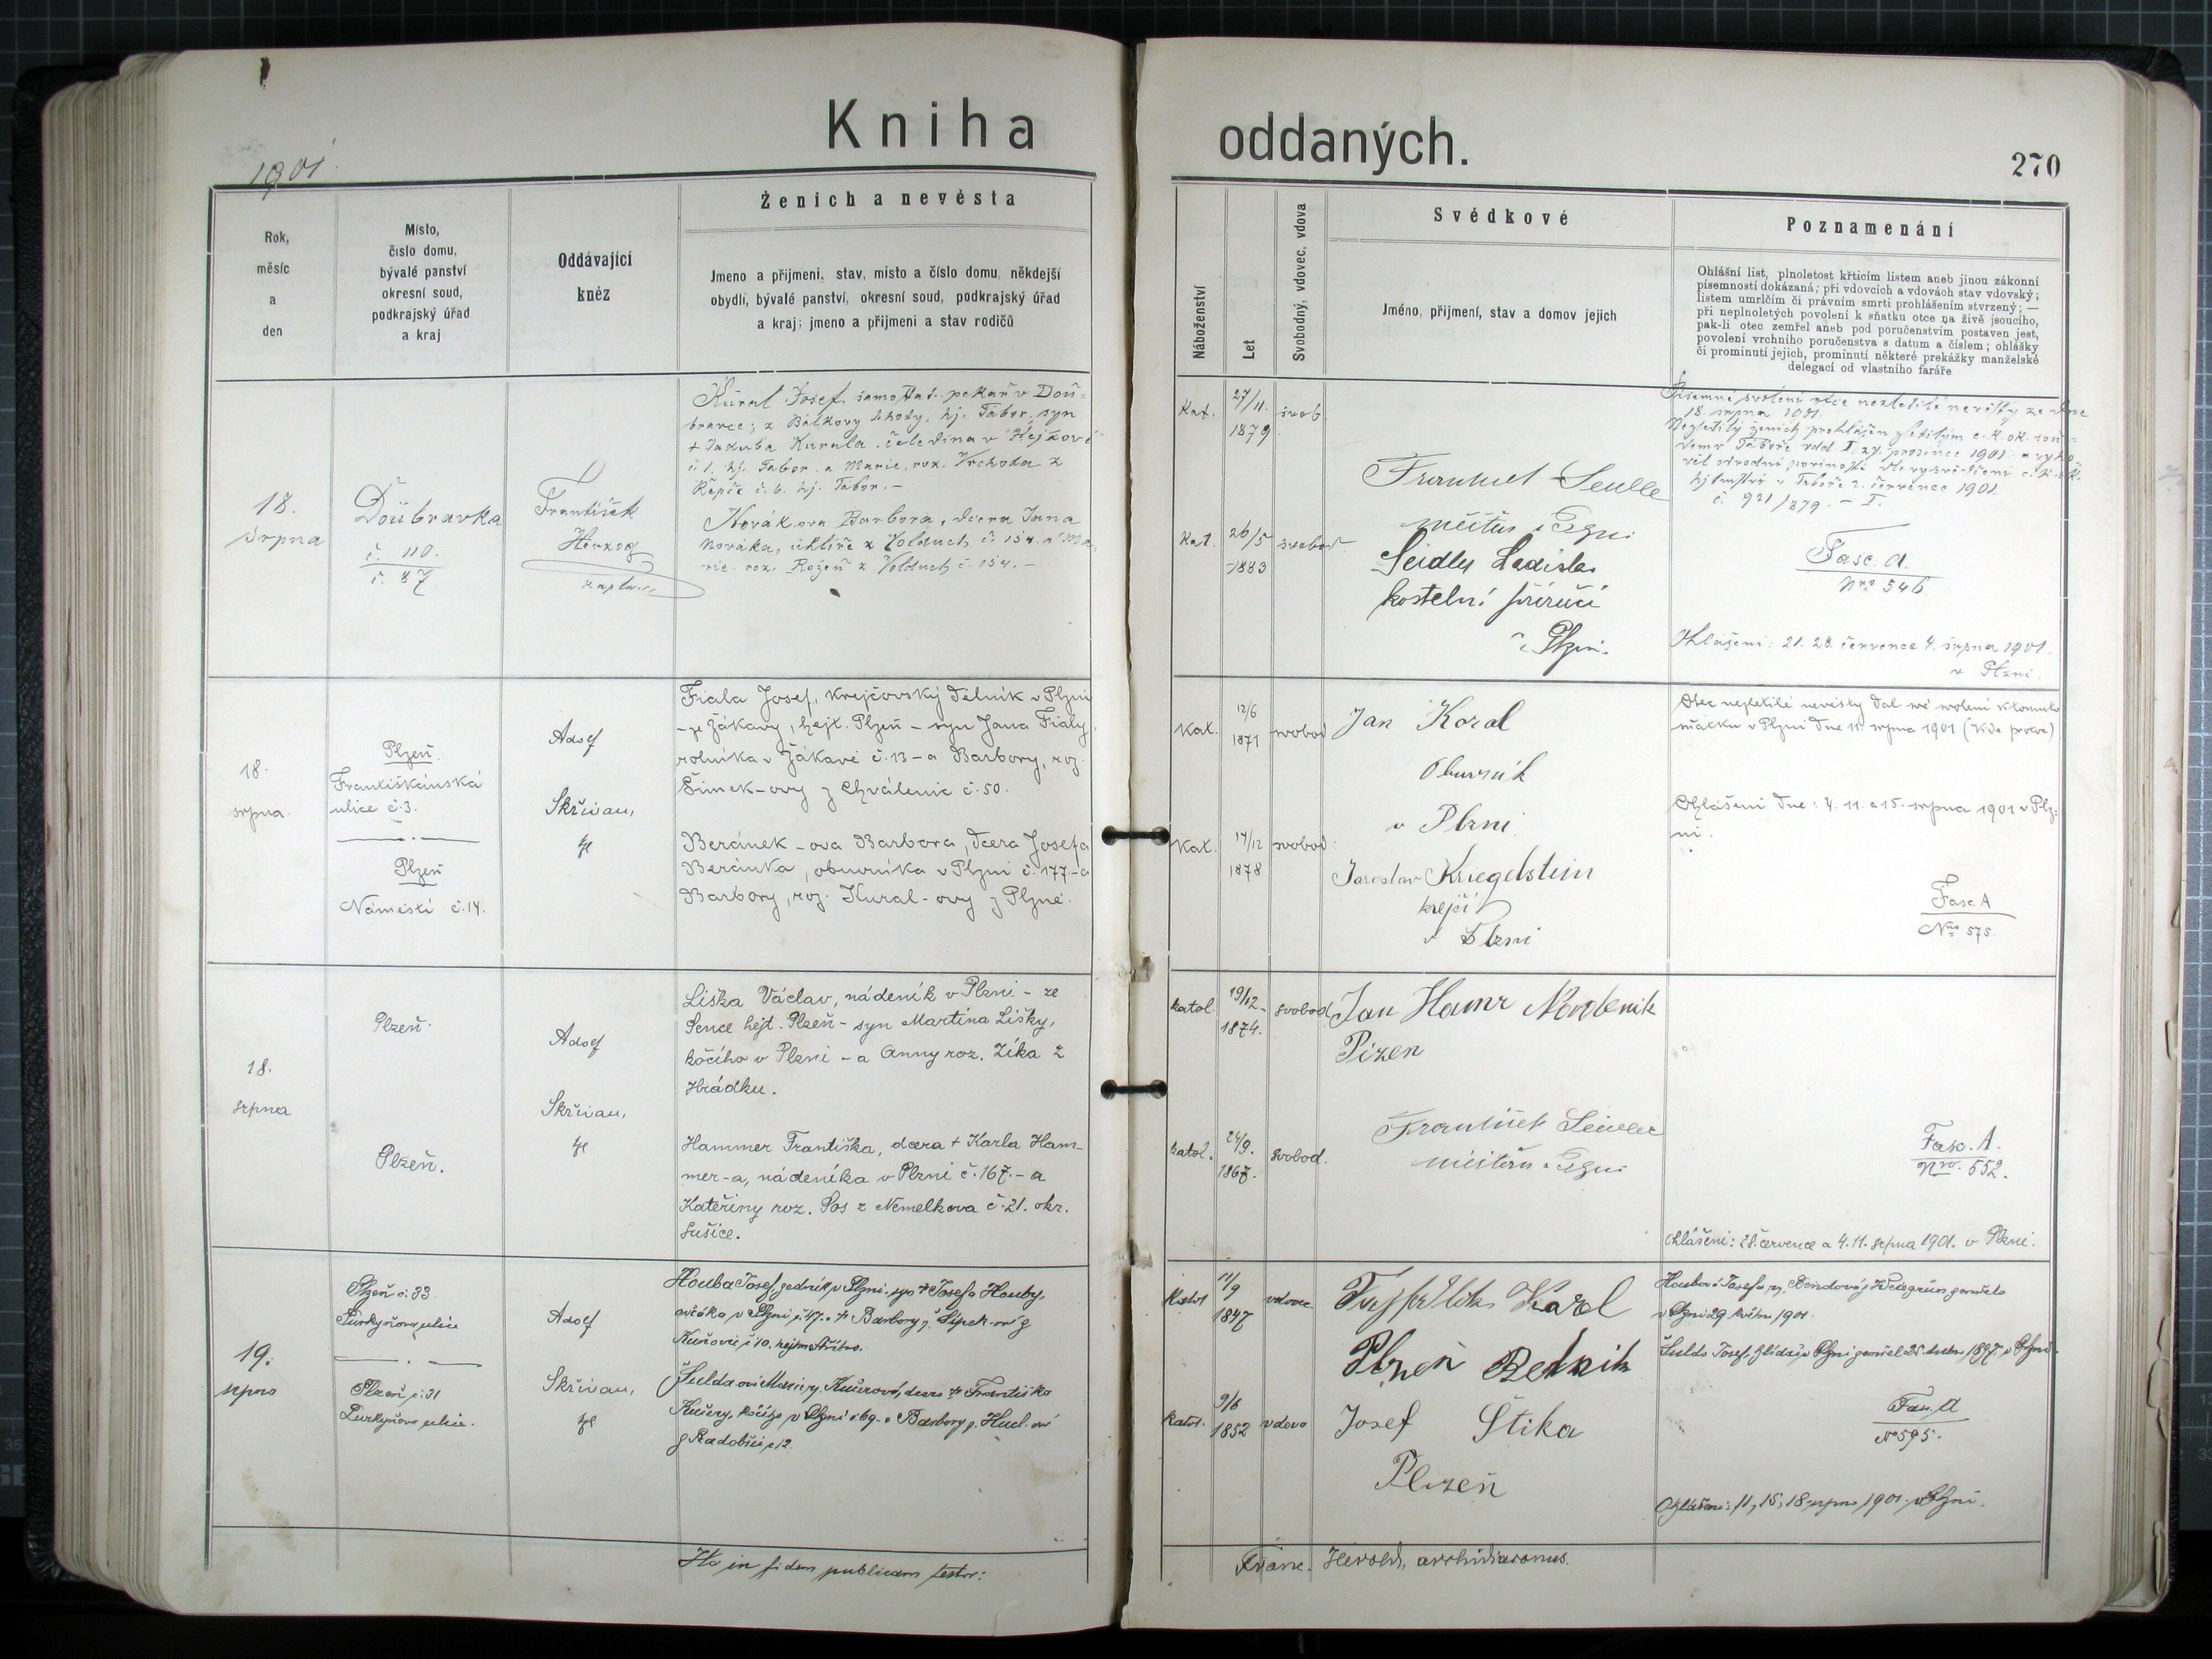 Kniha oddaných.
1901
270
Rok,
měsíc
a
den
Místo,
číslo domu,
bývalé panství
okresní soud,
podkrajský úřad
a kraj
Oddávající
kněz
Ženich a nevěsta
Jmeno a přijmeni, stav, misto a číslo domu, někdejší
obydlí, bývalé panství, okresní soud, podkrajský úřad
a kraj; jmeno a přijmeni a stav rodičů
Náboženství
Let
Svobodný, vdovec, vdova
Svědkové
Jméno, přijmení, stav a domov jejich
Poznamenání
Ohlášní list, plnoletost křticím listem aneb jinou zákonní
písemností dokázaná; při vdovcích a vdovách stav vdovský;
listem umrlčím či právním smrti prohlášením stvrzený; —
při neplnoletých povolení k sňatku otce na živě jsoucího,
pak-li otec zemřel aneb pod poručenstvím postaven jest,
povolení vrchního poručenstva s datum a číslem; ohlášky
či prominutí jejich, prominutí některé prekážky manželské
delegací od vlastního faráře
18.
srpna
Doubravka
č. 110.
č. 87
František
Herzog
kaplan
Kůral Josef, samostat. pekař v Dou-
bravce; z Bálkovy Lhoty, hj. Tábor, syn
+ Jakuba Kurala, čeledína v
č. 1. hj. Tábor a Marie, roz. Vrchoda z
Řepče č. 6. hj. Tabor. -
Novák-ova Barbora, dcera Jana
Nováka, uhlíře z Volduch č. 154. a Ma-
rie roz. z Volduch č. 154. -
Kat.
27/11.
1879
svob.
Kat.
26/5
1883
svobod.
František
Ladislav
kostelní
v Plzni.
Písemné svolení otce nezletilé nevěsty ze dne
18. srpna 1901.
Nezletilý ženich prohlášen zletilým c. k. ok. sou-
v Táboře 2. července 1901
č. 921/879. - I.
Fasc. A.
Nro 546
Ohlášení: 21. 28. července 4. srpna 1901.
v Plzni.
18.
srpna.
Plzeň.
Františkánská
ulice č. 3.
Plzeň
Náměstí č. 14.
Adolf
Skřivan,
Fiala Josef, krejčovský dělník v Plzni
- ze Žákavy, hejt. Plzeň - syn Jana Fialy,
rolníka v Žákavě č. 13 - a Barbory, roz.
Šimek-ovy z Chválenic č. 50.
Beránek-ova Barbora, dcera Josefa
Beránka, obuvníka v Plzni č. 177 - a
Barbory, roz. Kural-ovy z Plzně.
Kat.
12/6
1871
svobod
Kat.
17/12
1878
svobod.
Jan Koral
Obuvník
v Plzni
Jaroslav Kriegelstein
krejčí
v Plzni
Otec nezletilé nevěsty dal své svolení k tomuto
sňatku v Plzni dne 11. srpna 1901 (Vide )
Ohlášení dne: 4. 11. a 15. srpna 1901 v Plz-
ni.
Fasc. A
Nro 575.
18.
srpna
Plzeň.
Plzeň.
Adolf
Skřivan,
Liška Václav, nádeník v Plzni - ze
Sence hejt. Plzeň - syn Martina Lišky,
kočího v Plzni - a Anny roz. Zíka z
Hrádku.
Hammer Františka, dcera + Karla Ham-
mer-a, nádeníka v Plzni č. 167. - a
Kateřiny roz. Sos z Nemelkova č. 21. okr.
Sušice.
katol.
19/12-
1874.
svobod
katol.
24/9.
1867.
svobod.
Jan Hamr
Plzen
František
Fasc. A.
Nro. 552.
Ohlášení: 28. července a 4. 11. srpna 1901. v Plzni.
19.
srpna
Plzeň č. 33
Purkyňova ulice
Plzeň č. 31
Purkyňova ulice.
Adolf
Skřivan,
Houba Josef, v Plzni, syn + Josefa Houby,
v Plzni č. 47. a + Barbory r.
č. 10.
Fulda-ová Marie r. Kučerová, dcera + Františka
Kučery, kočího v Plzni č. 69. a Barbory r.
z č. 12.
Katol
11/9
1847
vdovec
Katol.
9/6
1852
vdova
Karel
Plzeň Bednik
Josef Štika
Plzeň
Houbová Josefa r. zemřela
v Plzni 29. května 1901.
Fulda Josef, v Plzni zemřel 25. 1897 v Plzni.
Fasc. A
No 595.
Ohlášení: 11, 15, 18 srpna 1901. v Plzni.
Ita in fidem publicam testor:
Franc. Herold, archidiaconus.